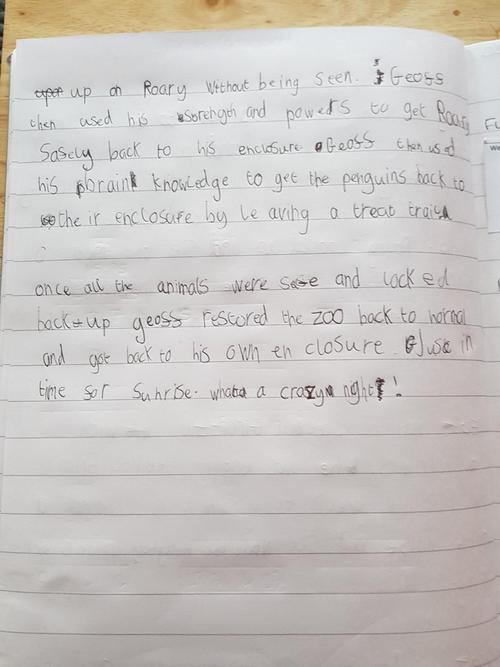 up on Roary Without being seen. Geoff
then used his strength and powers to get Roary
Safely back to his enclosure Geoff then used
his brain knowledge to get the penguins back to
their enclosure by leaving a treat trail
once all the animals were safe and locked
back-up geoff restored the zoo back to normal
and got back to his own enclosure. Just in
time for Sunrise. what a crazy night!